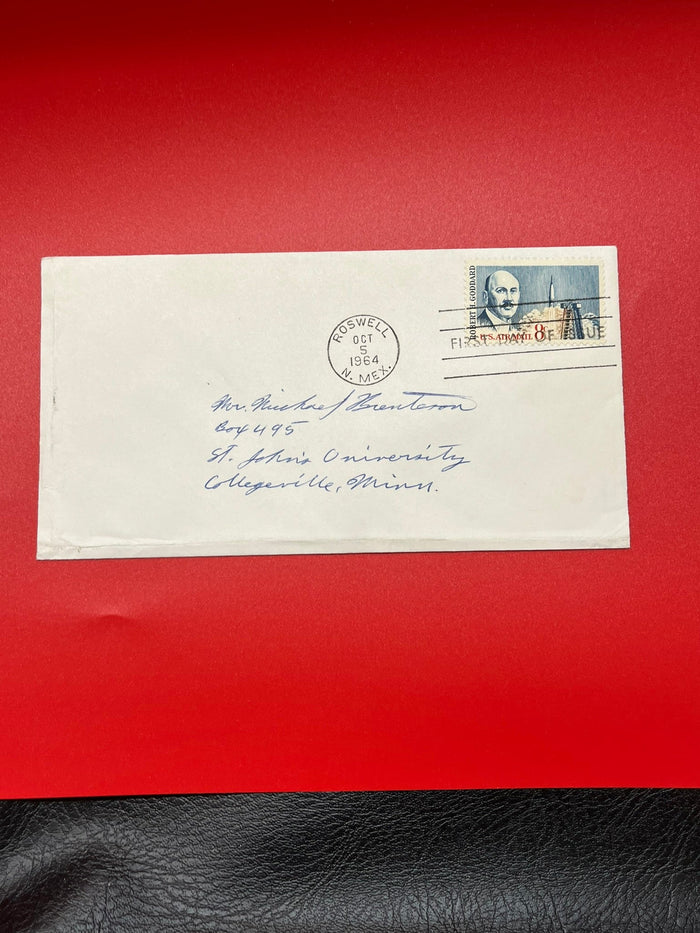 ROBERT H. GODDARD
U.S. AIR MAIL 8c
FIRST DAY OF ISSUE
ROSWELL
OCT
5
1964
N. MEX.
Mr. Michael
Box 495
St. John's University
Collegeville, Minn.